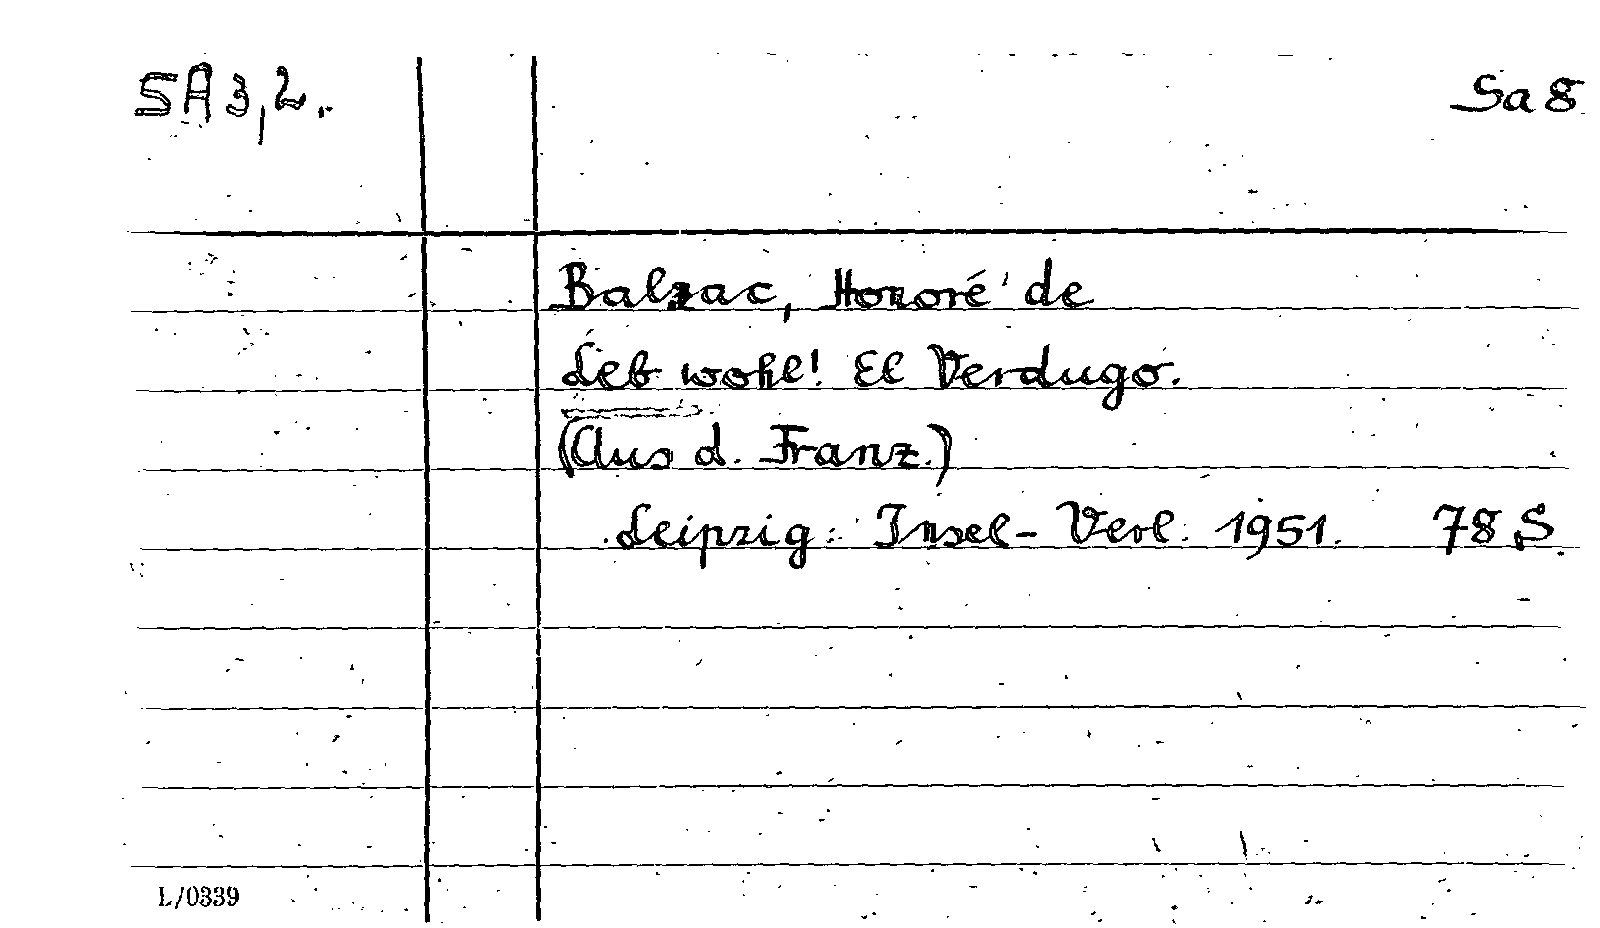 SA 3,2. Sa 8
Balzac, Honoré de
Leb wohl! El Verdugo.
(Aus d. Franz.)
Leipzig: Insel-Verl. 1951. 78 S.
L/0339